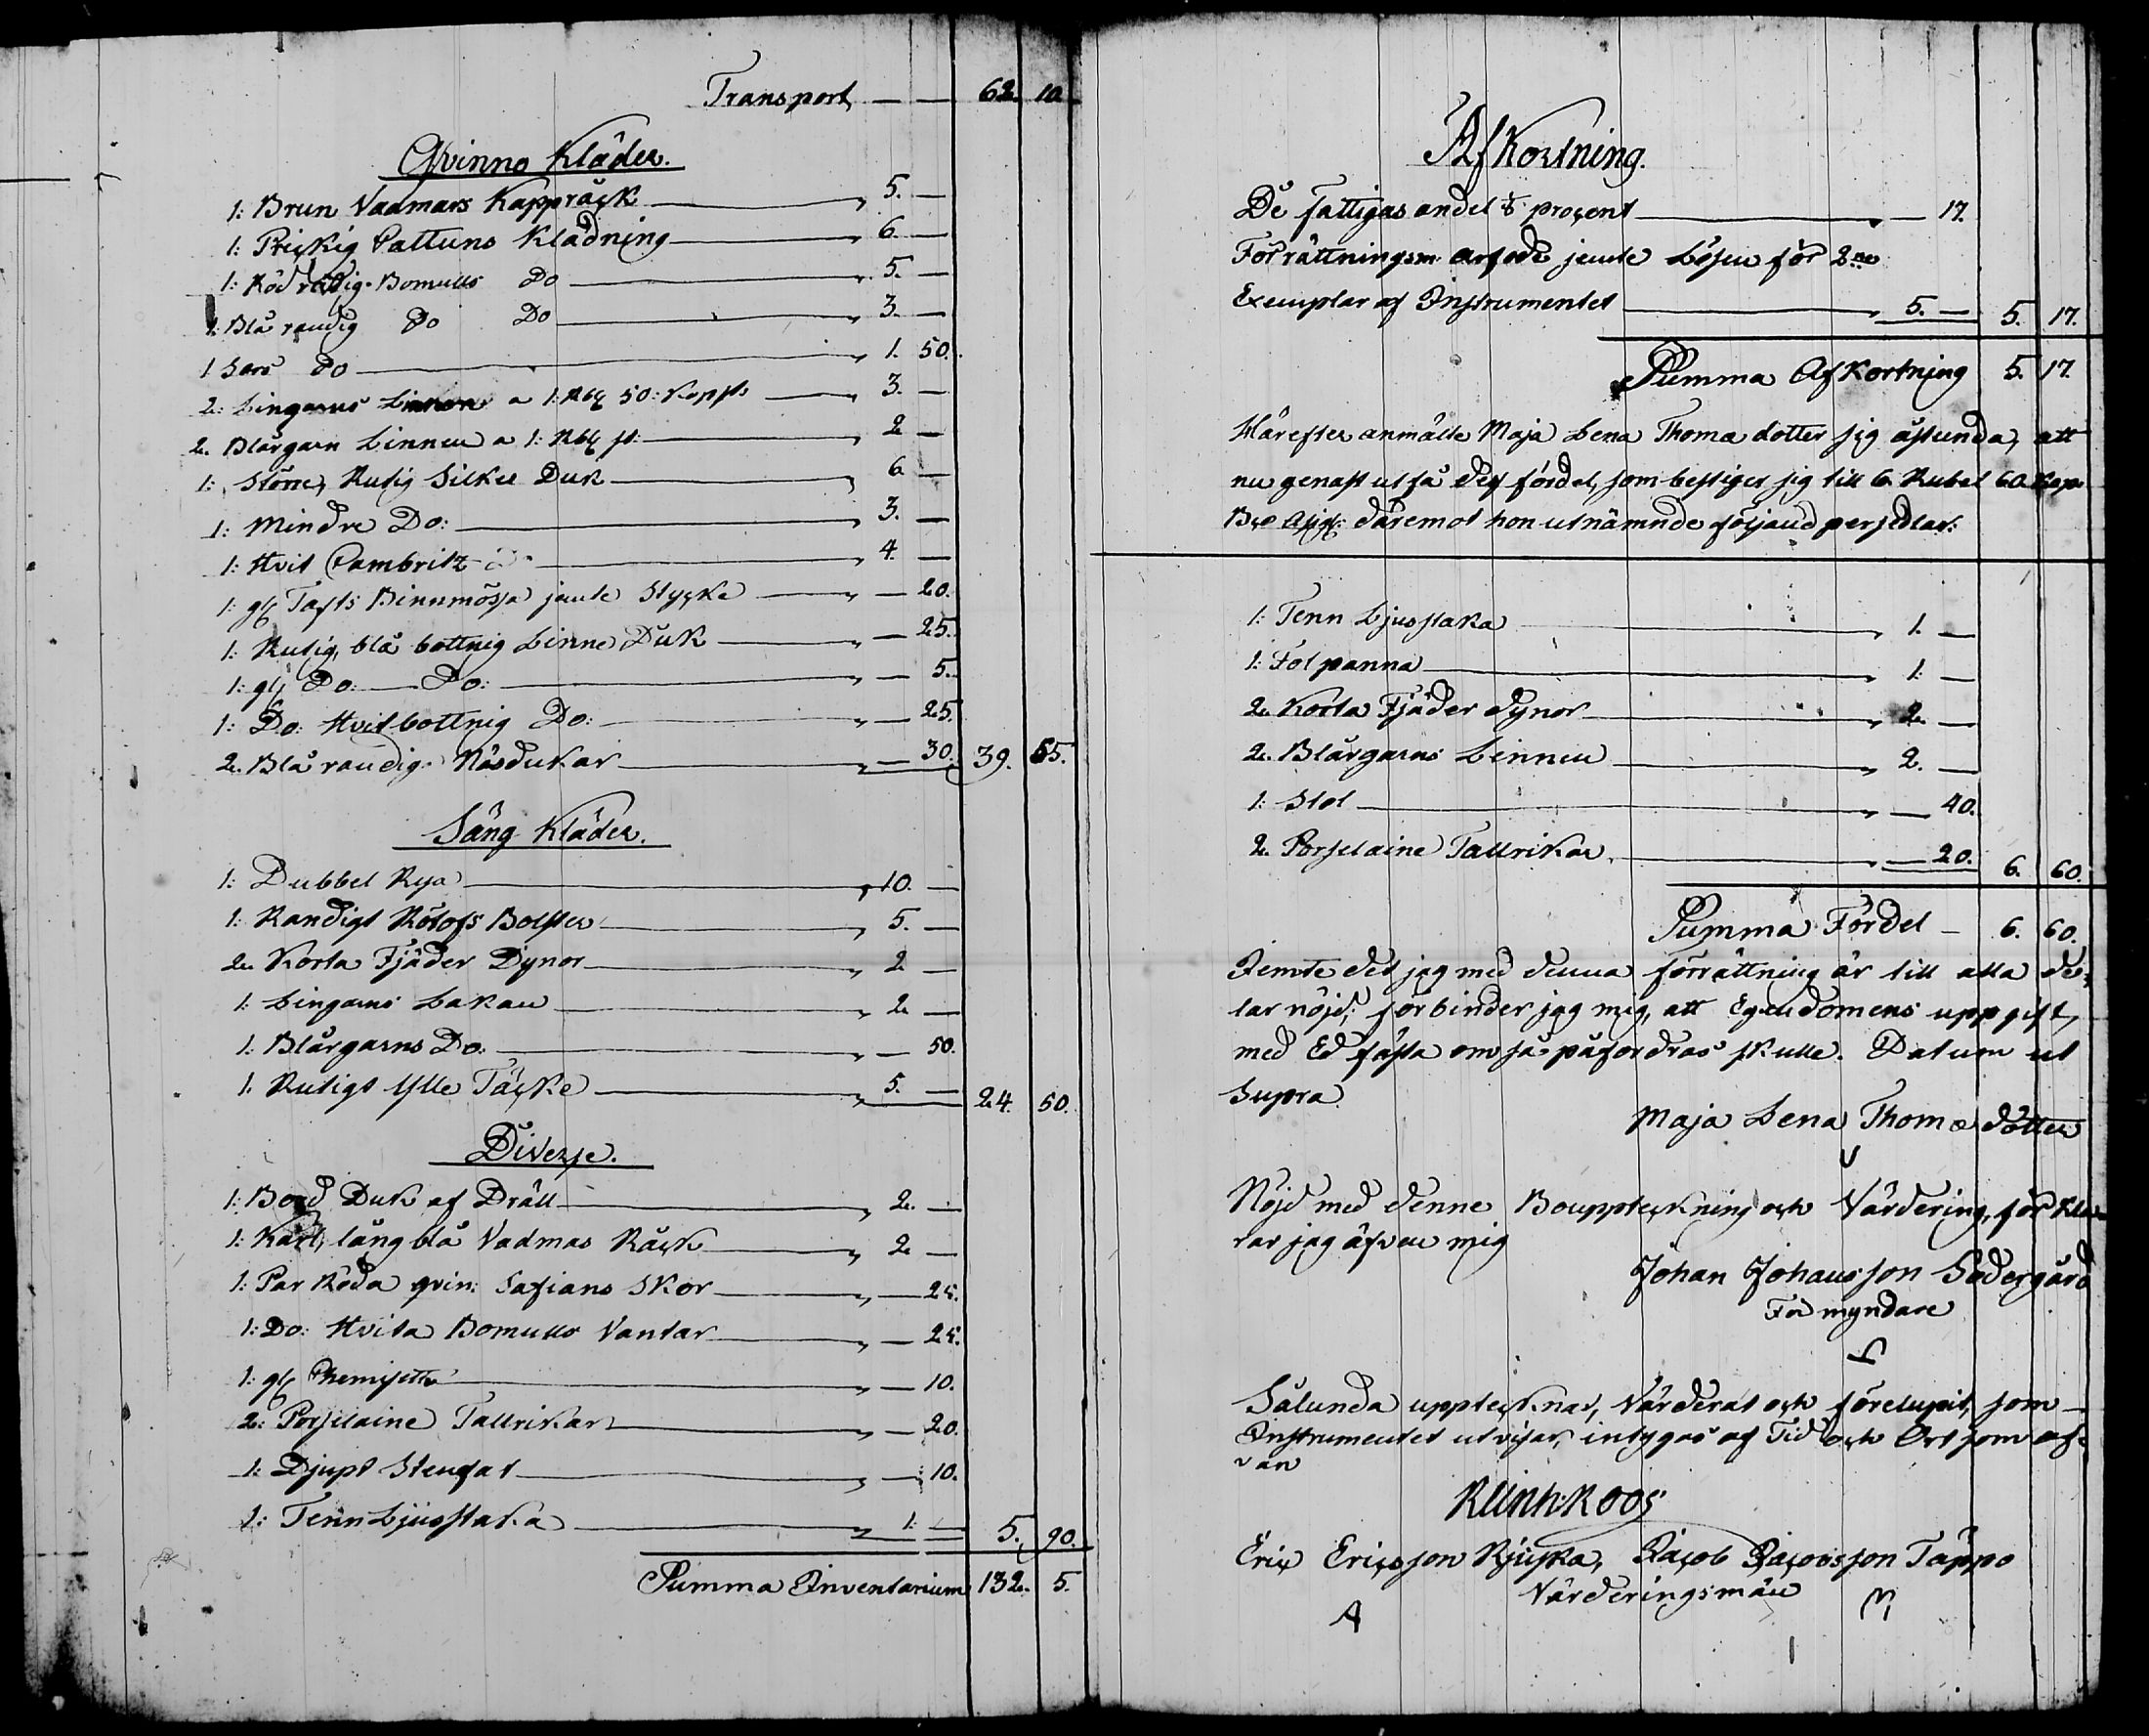 Transport — — 62. 10
Qvinno Kläder.
1: Brun Vadmars Kappråck — " 5. —
1: Prickig Cattuns Klädning — " 6. —
1: Röd radig Bomulls Do — " 5. —
1: Blå randig Do Do — " 3. —
1 Sars Do — " 1. 50.
2: Lingarns Linnen a 1: Rbl 50: Kopp — " 3. —
2. Blårgarn Linnen a 1: Rbl st: — " 2 —
1: Större, Rutig Silkes Duk — " 6. —
1: Mindre Do: — " 3. —
1: Hvit Cambritz — " 4. —
1: gl Tafts Binnmössa jemte Stycke — " — 20.
1: Rutig, blå bottnig Linne Duk — " — 25.
1: gl Do: — Do: — " — 5.
1: Do: Hvitbottnig Do: — " — 25.
2. Blå randig Näsdukar — " — 30. 39. 55.
Säng Kläder.
1: Dubbel Rya — " 10. —
1: Randigt Bolster — " 5. —
2. Korta Fjäder Dynor — " 2 —
1: Lingarns Lakan — " 2 —
1: Blårgarns Do: — " — 50.
1: Rutigt Ylle Täcke — " 5. — 24. 50.
Diverse.
1: Bord Duk af Dräll — " 2. —
1: Karl, lång blå Vadmas Råck — " 2 —
1: Par Röda qvin: Safians Skor — " — 25.
1: Do: Hvita Bomulls Vantar — " — 25.
1: gl Chemisette — " — 10.
2: Porselaine Tallrikar — " — 20.
1: Djupt Stenfat — " — 10.
1: Tenn Ljusstaka — " 1: — 5. 90.
Summa Inventarium 132. 5.
AfKortning.
De fattigas andel procent — " — 17.
Förrättningsm: arfode jemte Lösen för 2ne
Exemplar af Instrumentet — " 5. — 5. 17.
Summa AfKortning 5. 17.
Härefter anmälte Maja Lena Thomædotter sig åstunda, att
nu genast utfå des fördel, som bestiger sig till 6. Rubel 60. Kop.
Bco Asig: däremot hon utnämnde följand persedlar:
1: Tenn Ljusstaka — " 1. —
1: Fotpanna — " 1: —
2. Korta Fjäder dynor — " 2. —
2. Blårgarns Linnen — " 2. —
1: Stol — " — 40.
2. Porselaine Tallrikar — " — 20. 6. 60.
Summa Fördel — 6. 60.
Jemte det jag med denna förrättning är till alla de-
lar nöjd, förbinder jag mig, att Egendomens uppgift,
med Ed fästa om så påfordras skulle. Datum ut
Supra
Maja Lena Thomæ dotter
Nöjd med denne Bouppteckning och Värdering, förkla-
rar jag äfven mig
Johan Johansson Södergård
Förmyndare
Sålunda uppteknat, Värderat och förelupit, som
Instrumentet utvisar, intygas af Tid och Ort som of-
van
Reinh: Roos
Eric Ericsson Jacob Jacobsson Täppo
Värderingsmän